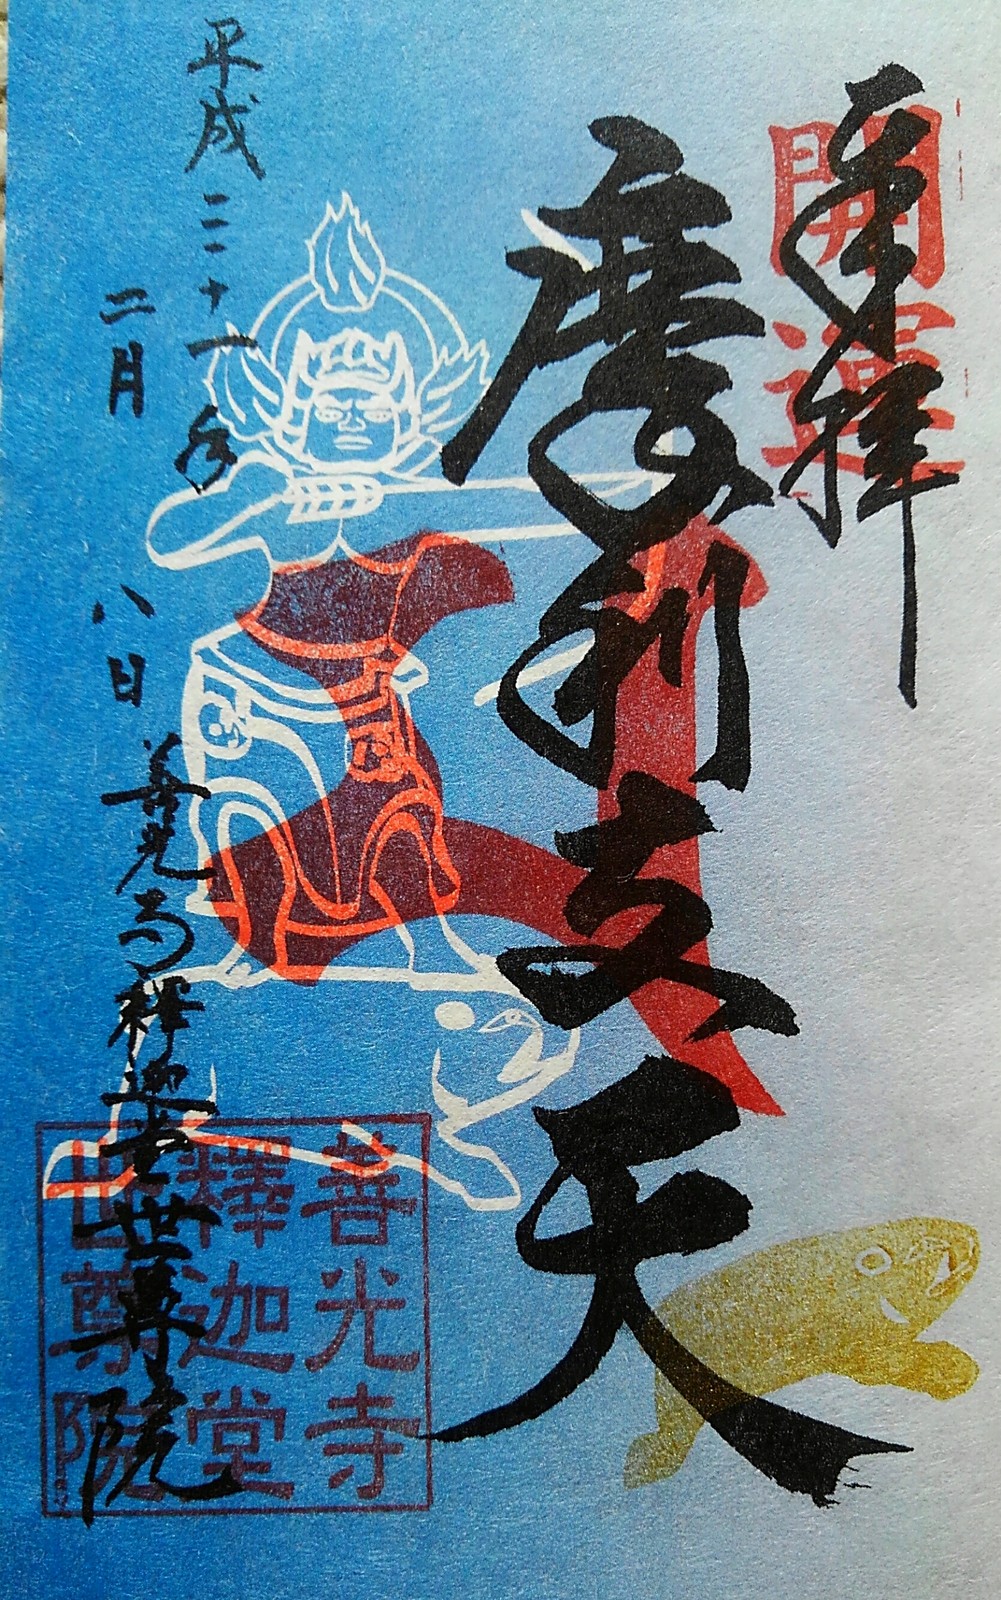 開運
奉拝
摩利支天
平成三十一年
二月
八日
善光寺釋迦堂世尊院
善光寺
釋迦堂
世尊院